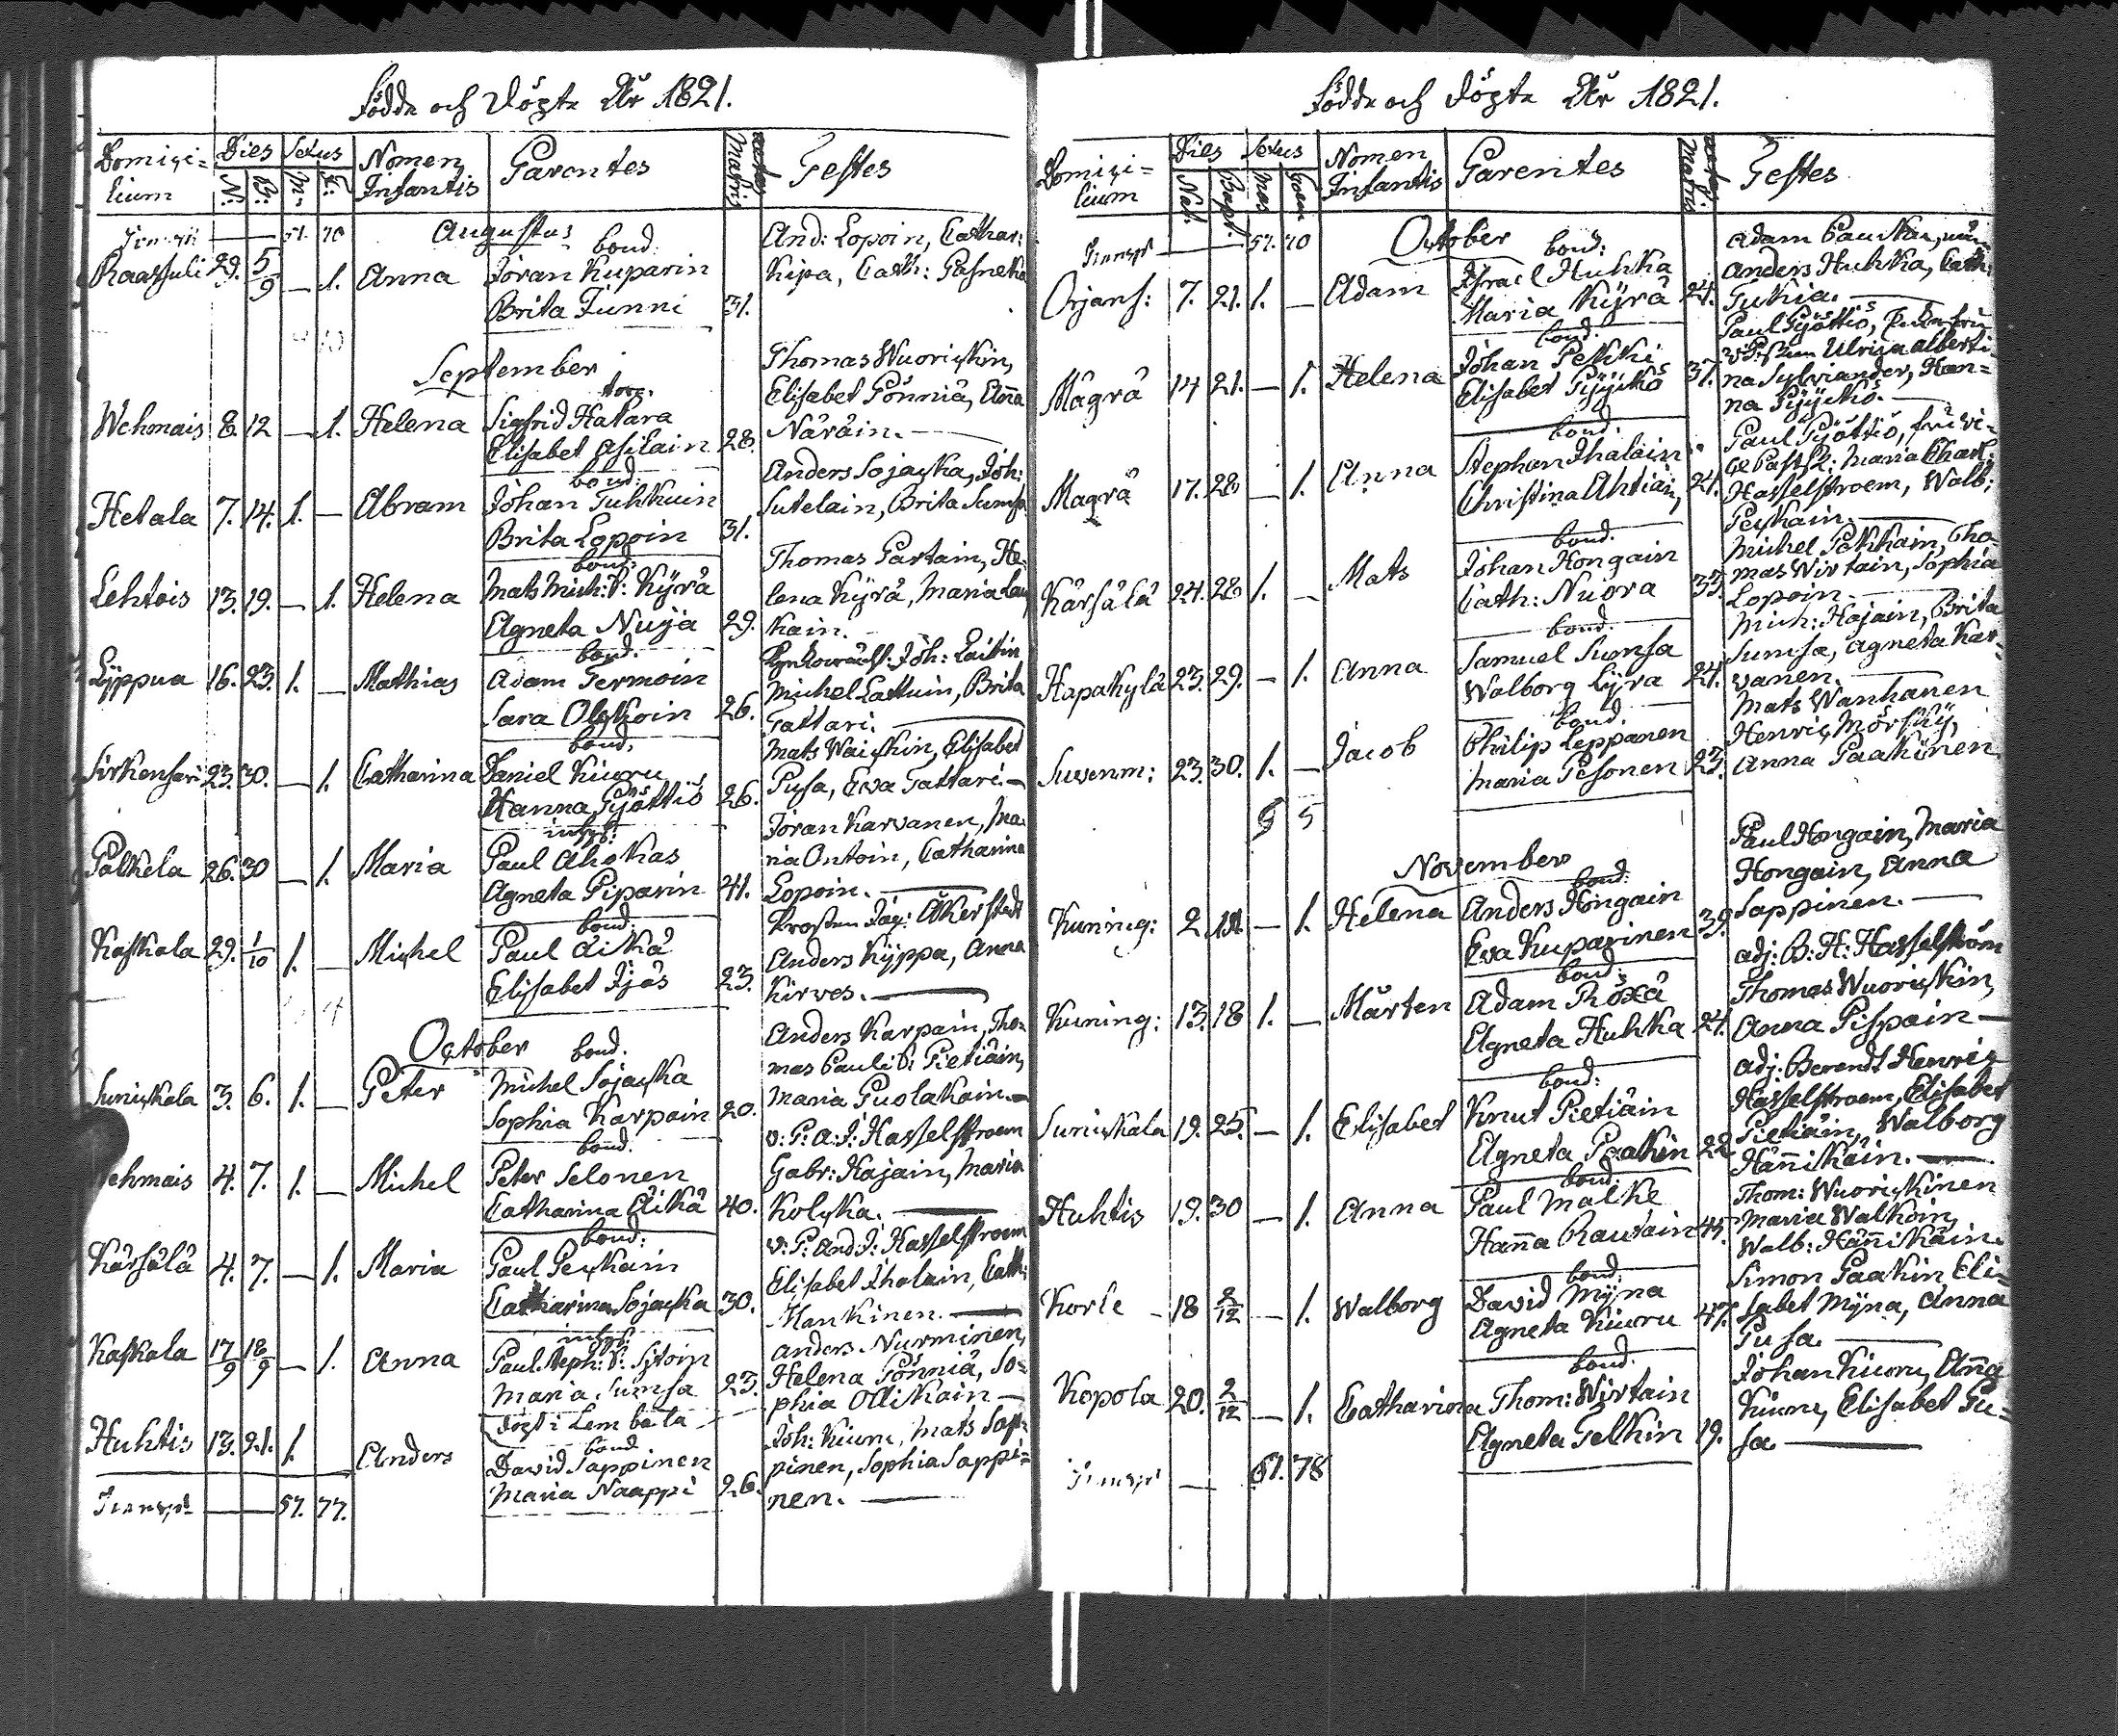 Födde och Döpte År 1821.
Domici=
lium
Dies
N:
B:
Sexus
M:
F:
Nomen
Infantis
Parentes
aetas
Matris
Testes
Transp 51. 70
Augustus
Raasuli 29. 5/9 — 1. Anna
bond.
Jöran Kuparin
Brita Junni 31.
And: Lopoin, Cathar:
Kipa, Cath:
September
Wehmais 8. 12 — 1. Helena
torp.
Sigfrid Hatara
Elisabet Asilain 28.
Thomas Wuorickin,
Elisabet Pönniä, Anna
Näräin.
Hetala 7. 14. 1. — Abram
bond.
Johan Tuhkuin
Brita Loppoin 31.
Anders Sojacka, Joh:
Sutelain, Brita Sumsa
Lehtois 13. 19. — 1. Helena
bond.
Mats Mich: S: Kyrä
Agneta Nuija 29.
Thomas Partain, He-
lena Kyrä, Maria Lau
kain.
Lyppua 16. 23. 1. — Mathias
bond.
Adam Termoin
Sara Olckoin 26.
Joh: Laitin
Michel Lattuin, Brita
Tattari.
Sirkensari 23. 30. — 1. Catharina
bond.
Daniel Kiuru
Hanna Pyöttiö 26.
Mats Waickin, Elisabet
Pusa, Eva Tattari.—
Palkela 26. 30 — 1. Maria
inhys:
Paul Ahokas
Agneta Piparin 41.
Jöran Karvanen, Ma-
ria Ontoin, Catharina
Lopoin.
Kaskala 29. 1/10 1. — Michel
bond.
Paul Äikä
Elisabet Ijäs 23.
Åkerstedt
Anders Kyppa, Anna
Kirves.
October
Surickala 3. 6. 1. — Peter
bond.
Michel Sojacka
Sophia Karpain 20.
Anders Karpain, Tho-
mas Pauli S: Pietiäin,
Maria Puolakain.—
Wehmais 4. 7. 1. — Michel
bond.
Peter Selonen
Catharina Äikä 40.
v: P: A: J: Hasselstroem
Gabr: Hajain, Maria
Kolcka.
Kärsälä 4. 7. — 1. Maria
bond:
Paul Peckain
Catharina Sojacka 30.
v: P: And: J: Hasselstroem
Elisabet Ihalain, Cath:
Mankinen.
Kaskala 17/9 18/9 — 1. Anna
inhys:
Paul Steph: S: Sjtoin
Maria Sumsa 23.
Döpt i Lembala
Anders Nurminen,
Helena Pönniä, So-
phia Ollikain—
Huhtis 13. 21. 1. Anders
bond
David Sappinen
Maria Naappi 26.
Joh: Kiuru, Mats Sap-
pinen, Sophia Sappi-
nen.
Transpt 57. 77.
Födde och Döpte År 1821.
Domici=
lium
Dies
Nat:
Bapt
Sexus
Mas
Foem
Nomen
Infantis
Parentes
aetas
Matris
Testes
Transpt 57. 70
October
Orjans: 7. 21. 1. — Adam
bond:
Israel Huhka
Maria Kyrä 24.
Adam
Anders Huhka, Cath:
Tukia.
Mägrä 14 21. — 1. Helena
bond.
Johan Pekki
Elisabet Pyyckö 37.
Paul Pyöttiö,
Ulrica Alberti-
na Sylviander, Han=
na Pyyckö.
Mägrä 17. 28 — 1. Anna
bond:
Stephan Ihalain
Christina Ahtiain, 24.
Paul Pyöttiö, fru vi=
Maria Charl:
Hasselstroem, Walb:
Peckain.
Kärsälä 24. 28 1. — Mats
bond.
Johan Hongain
Cath: Nuora 33.
Michel Pekkain, Tho
mas Wirtain, Sophia
Lopoin.
Hapakylä 23. 29. — 1. Anna
bond.
Samuel Sumsa
Walborg Lyra 24.
Mich: Hajain, Brita
Sumsa, Agneta Kar-
vanen.
Suvenm: 23. 30. 1. — Jacob
bond.
Philip Leppanen
Maria Pesonen 23.
Mats Wanhanen
Henric Mörsky,
Anna Paakinen
5 5
November
Kuning: 2 — 1. Helena
bond:
Anders Hongain
Eva Kuparinen 39.
Paul Hongain, Maria
Hongain, Anna
Sappinen.
Kuning: 13. 18 1. — Mårten
bond:
Adam Röxä
Agneta Huhka 24.
Adj: B: H: Hasselström
Thomas Wuorickin,
Anna Pispain—
Surickala 19. 25. — 1. Elisabet
bond:
Knut Pietiäin
Agneta Paakin 22
Adj: Berendt Henric
Hasselstroem, Elisabet
Pietiäin, Walborg
Hännikäin.
Huhtis 19. 30 — 1. Anna
bond.
Paul Malke
Hanna Rautain 45.
Thom: Wuorickinen
Maria Walkoin,
Walb: Hännikäin.
Korle 18 2/12 — 1. Walborg
bond:
David Myna
Agneta Kiuru 47.
Simon Paakin Eli=
sabet Myna, Anna
Pusa.
Kopola 20. 2/12 — 1. Catharina
bond.
Thom: Wirtain
Agneta Telkin 19.
Johan Kiuru, Anna
Kiuru, Elisabet Pu=
sa
Transpt — 61. 78